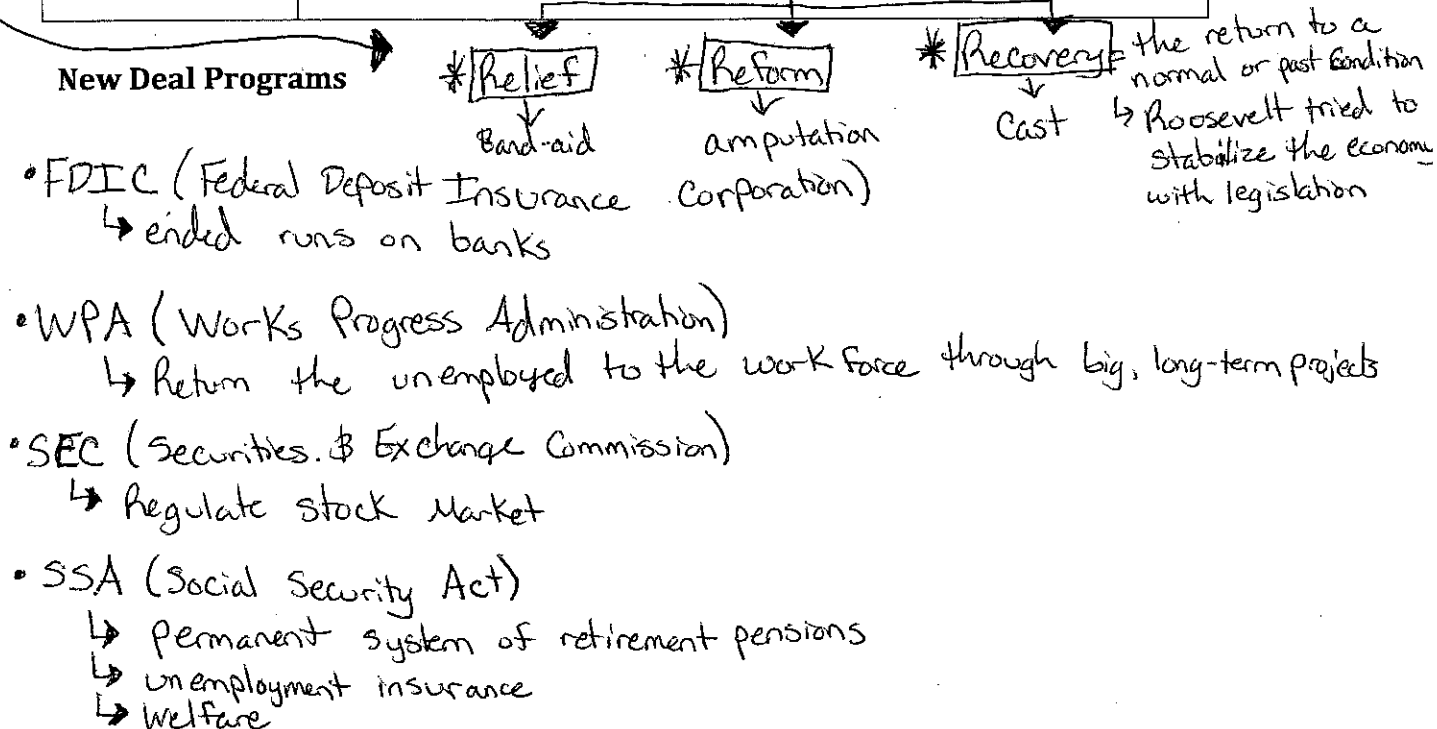 New Deal Programs
* Relief
Band-aid
* Reform
amputation
* Recovery = the return to a
normal or past condition
Cast
↳ Roosevelt tried to
stabilize the economy
with legislation
• FDIC (Federal Deposit Insurance Corporation)
↳ ended runs on banks
• WPA (Works Progress Administration)
↳ Return the unemployed to the work force through big, long-term projects
• SEC (Securities & Exchange Commission)
↳ Regulate Stock Market
• SSA (Social Security Act)
↳ permanent system of retirement pensions
↳ unemployment insurance
↳ Welfare